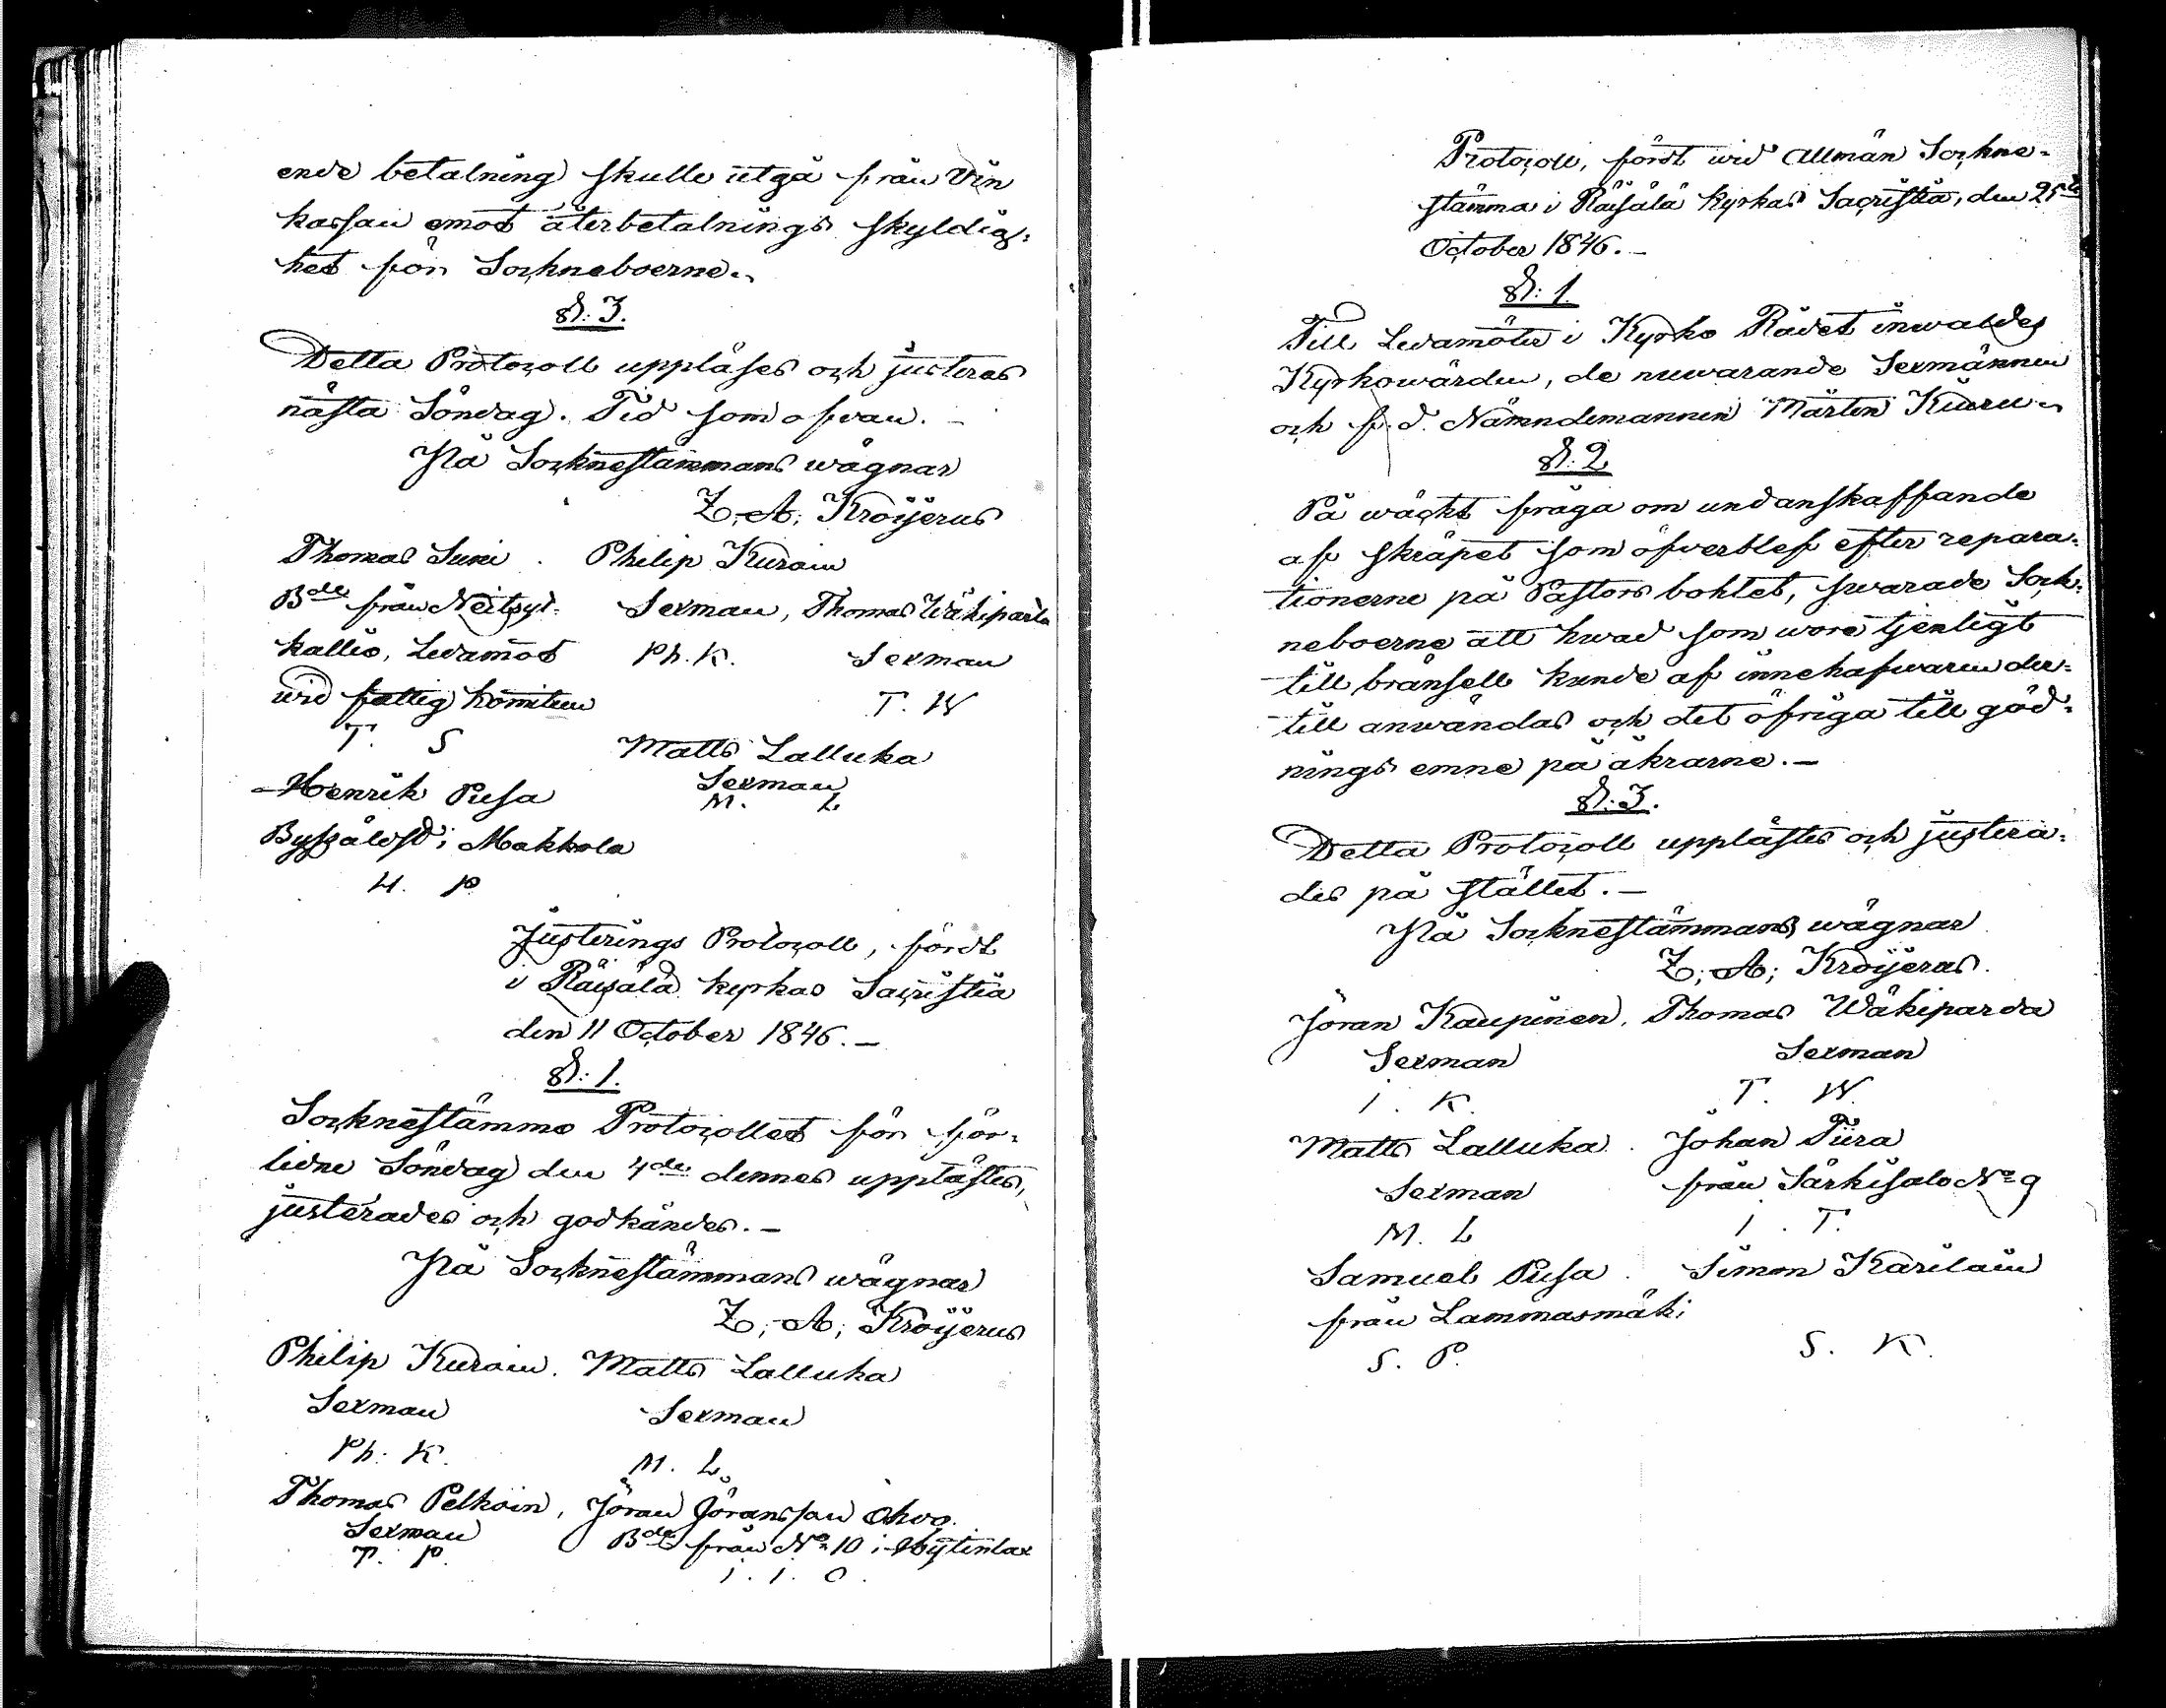 ende betalning skulle utgå från Vin
kassan emot återbetalnings skyldig-
het för Sockneboerne.
§: 3.
Detta Protocoll uppläses och justeras
nästa Söndag. Tid som ofvan. —
På Socknestämmans wägnar
Z; A; Kröijerus
Thomas Suni. Philip Kurain
Bde från Neitsyt- Sexman, Thomas Wäkiparta
kallio, Ledamot Ph. K. Sexman
wid fattig komiteen T. W
T. S Matts Lalluka
Henrik Pusa Sexman
M. L
Byssåldr i Makkola
H. P
Justerings Protocoll, fördt
i Räisälä kyrkas Sacristia
den 11 October 1846. —
§: 1.
Socknestämmo Protocollet för för-
lidne Söndag den 4de dennes upplästes,
justerades och godkändes. —
På Socknestämmans wägnar
Z; A; Kröijerus
Philip Kurain. Matts Lalluka
Sexman Sexman
Ph: K. M. L
Thomas Pelkoin, Jöran Jöransson Ohvo.
Sexman Bde från No 10 i Hytinlax
T. P. I. I. O.
Protocoll, fördt wid Allmän Sockne-
stämma i Räisälä kyrkas Sacristia, den 25te
October 1846. —
§: 1.
Till Ledamöter i Kyrko Rådet inwaldes
Kyrkowärden, de nuwarande Sexmännen
och f. d. Nämndemannen Mårten Kuuru.
§: 2
På wäckt fråga om undanskaffande
af skräpet som öfverblef efter repara-
tionerne på Pastors bohlet, swarade Sock-
neboerne att hwad som wore tjenligt
till bränsell kunde af innehafwaren der-
till anwändas och det öfriga till göd-
nings emne på åkrarne. —
§: 3.
Detta Protocoll upplästes och justera-
des på stället. —
På Socknestämmans wägnar
Z; A; Kröijerus.
Jöran Kaupinen. Thomas Wäkiparda
Sexman Sexman
I. K. T. W.
Matts Lalluka. Johan Tiira
Sexman från Särkisalo No 9
M. L I. T.
Samuel Pusa. Simon Karilain
från Lammasmäki
S. P. S. K.